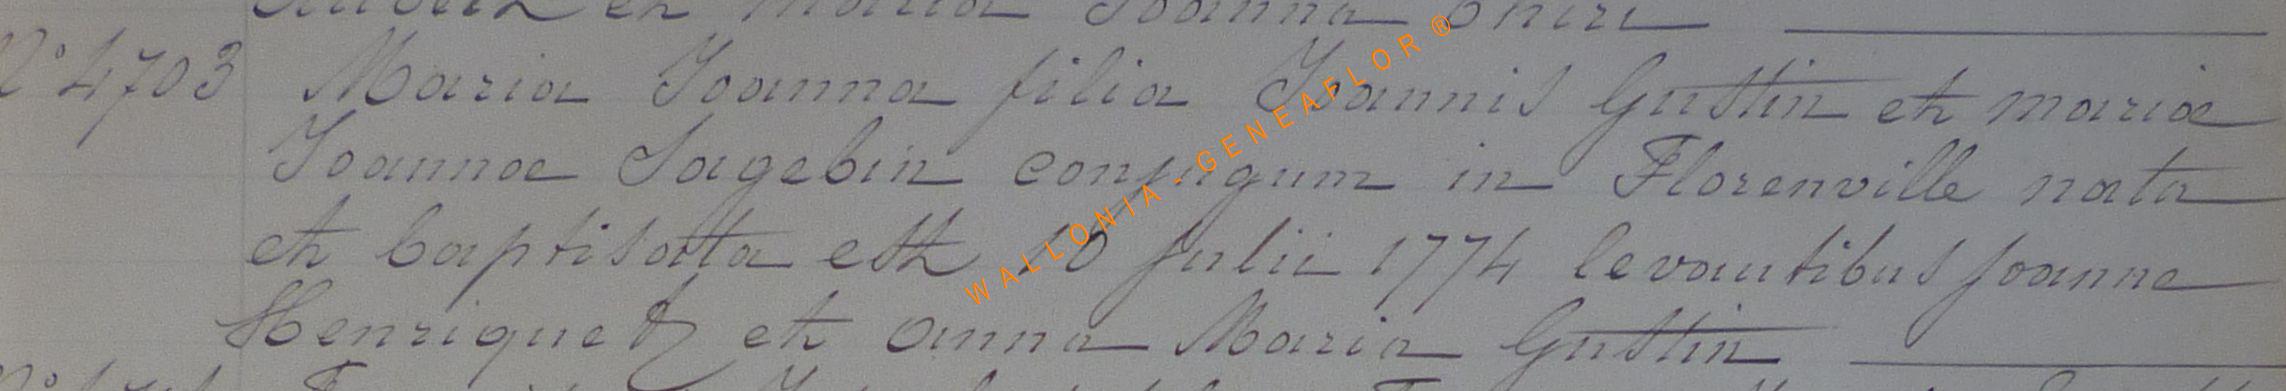 et Maria Joanna
N° 4703 Maria Joanna filia Joannis Gustin et mariæ
Joannæ Sagebin conjugum in Florenville nata
et baptisatta est 10 Julii 1774 levantibus Joanne
Henriquet et anna Maria Gustin
WALLONIA-GENEAFLOR®